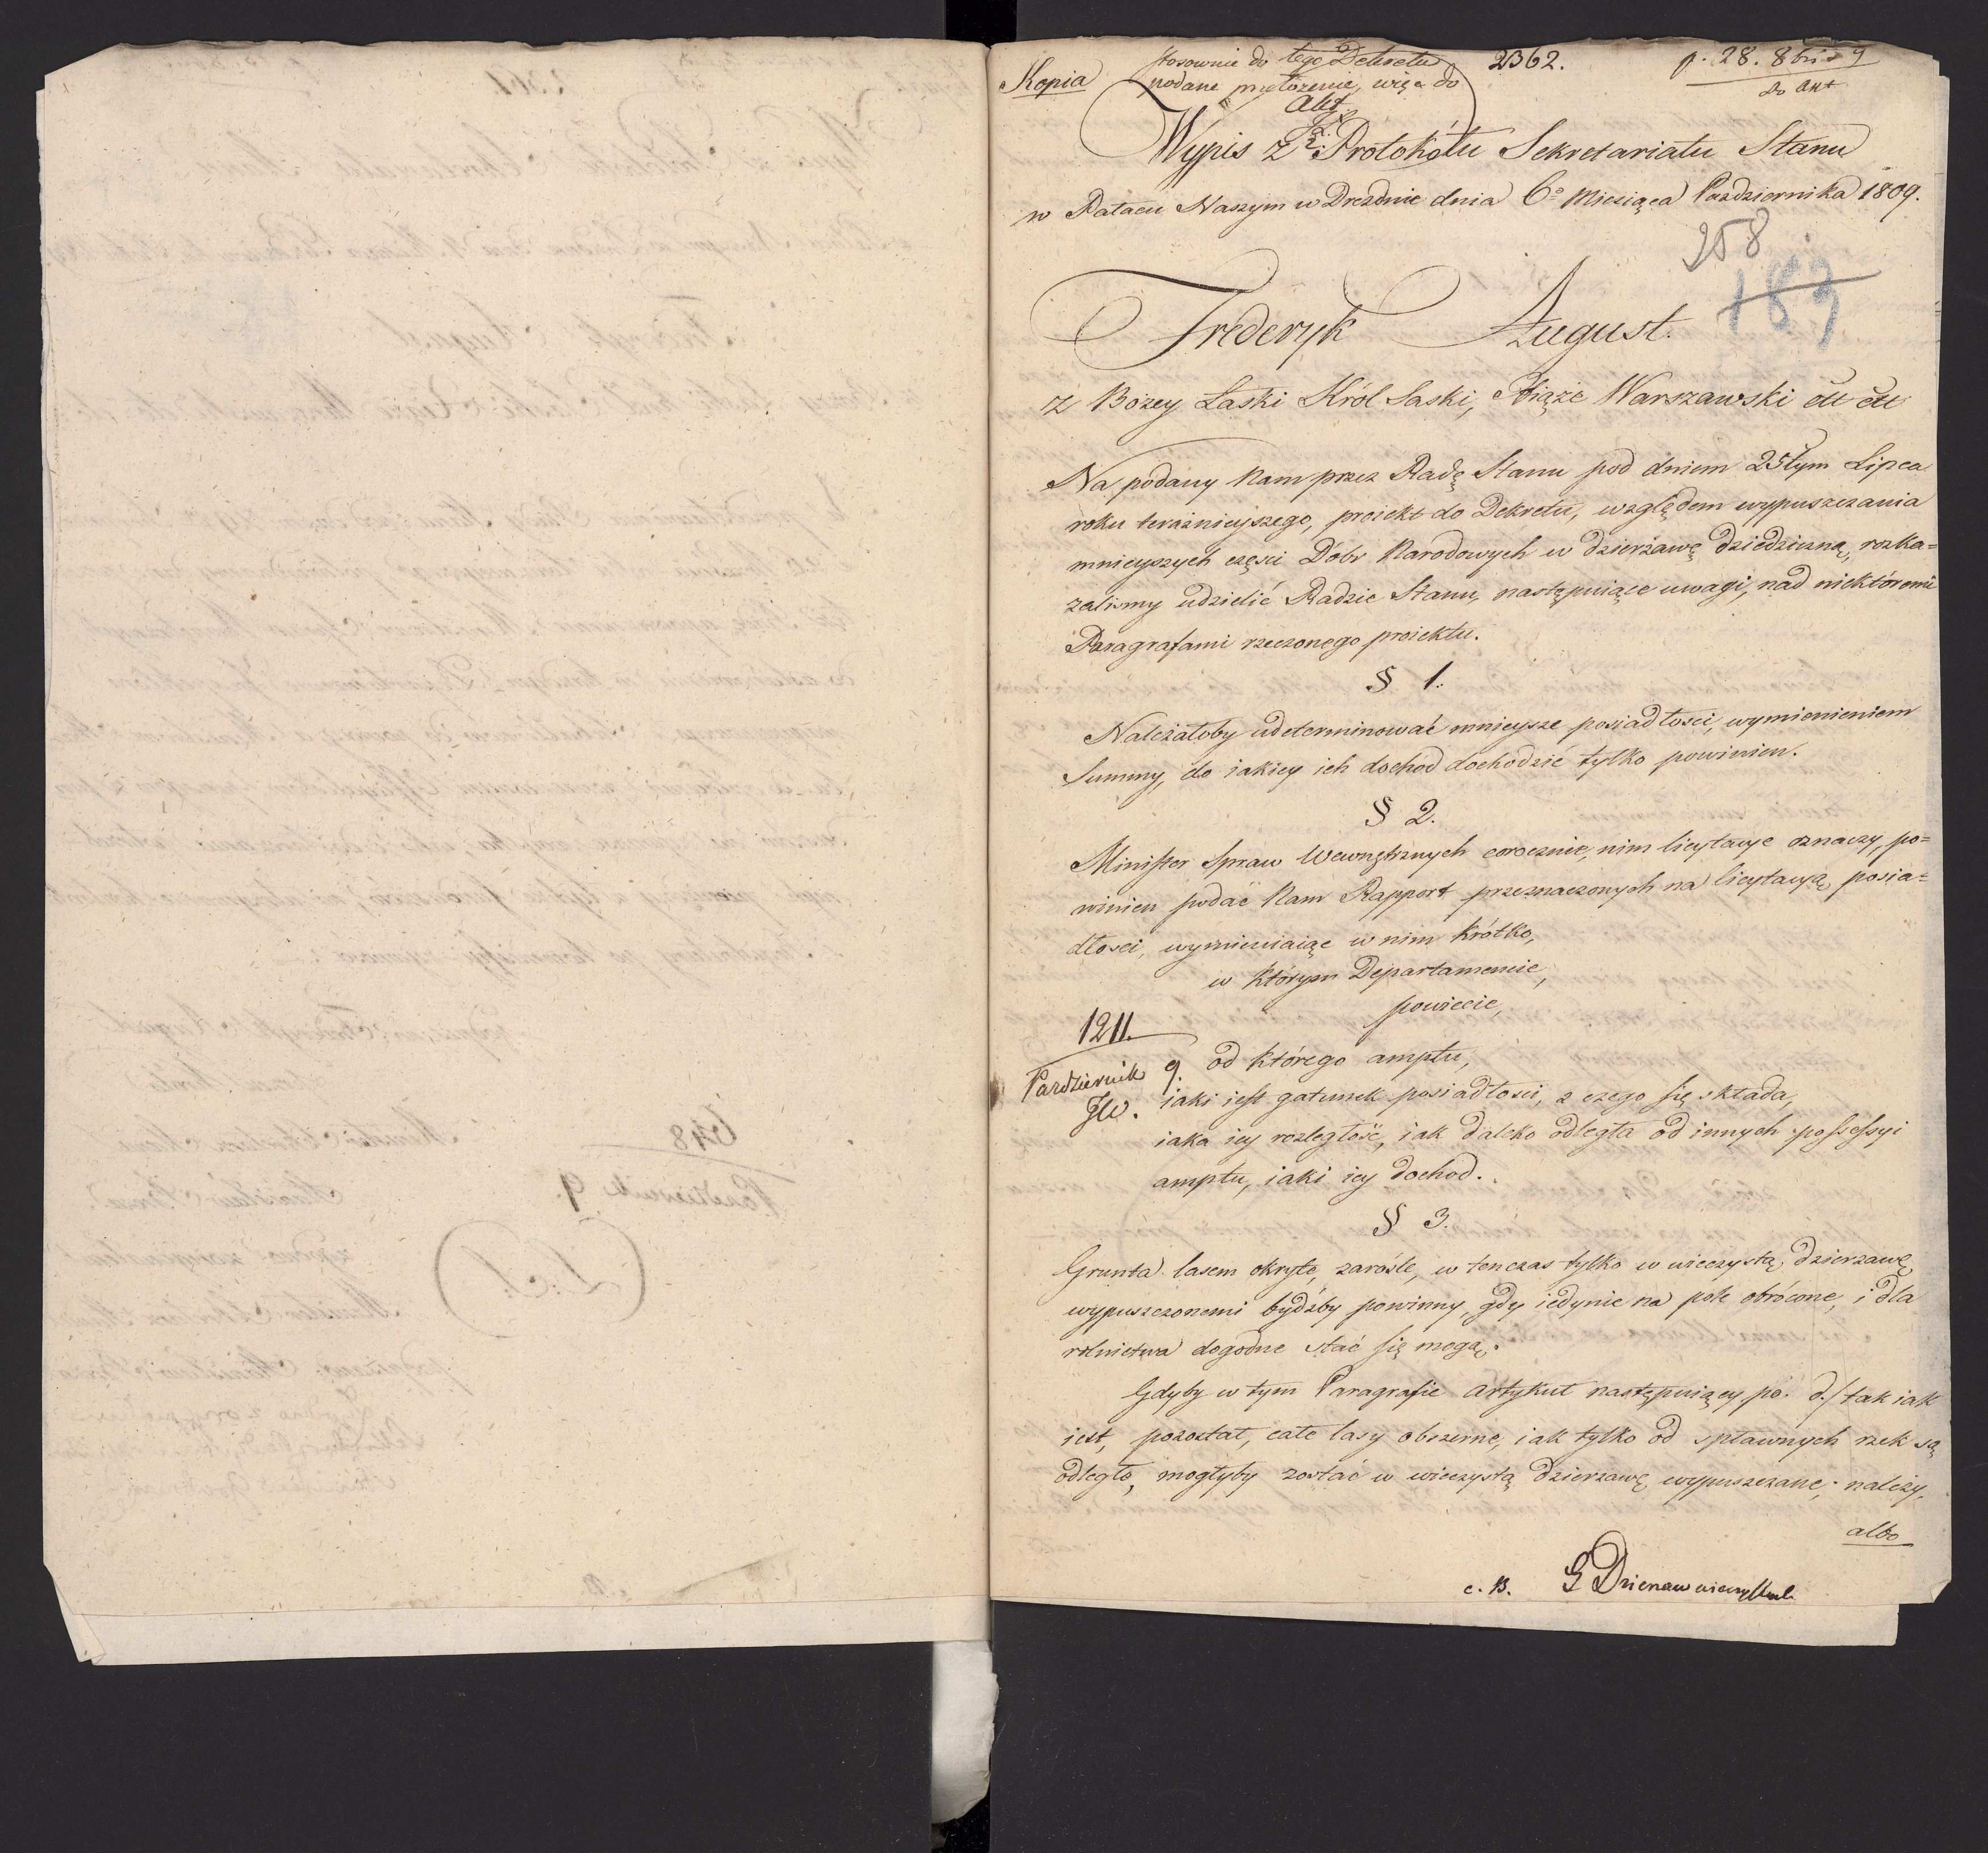 Kopia
stosownie do tego Dekretu
podane przełożenie, więc do
Akt.
2362.
p. 28. 8bris 9
do Akt
Wypis z Protokółu Sekretariatu Stanu
w Pałacu Naszym w Dreźdnie dnia 6º Miesiąca Października 1809.
258
183
Frederyk August.
z Bożey Łaski Król Saski, Xiąże Warszawski ett ett
Na podany Nam przez Radę Stanu pod dniem 25tym Lipca
roku teraźnieyszego, proiekt do Dekretu, względem wypuszczania
mnieyszych części Dóbr Narodowych w dzierżawę dziedziczną, rozka=
zaliśmy udzielić Radzie Stanu, następuiące uwagi, nad niektóremi
Paragrafami rzeczonego proiektu.
§ 1.
Należałoby udeterminować mnieysze posiadłości, wymienieniem
Summy, do iakiey ich dochod dochodzić tylko powinien.
§ 2.
Minister Spraw Wewnętrznych corocznie, nim licytacye oznaczy, po=
winien podać Nam Rapport przeznaczonych na licytacyą posia=
dłości, wymieniaiąc w nim krótko,
w którym Departamencie,
powiecie,
od którego amptu,
1211.
Pazdziernik 9.
JW.
iaki iest gatunek posiadłości, z czego się składa,
iaka iey rozległość, iak daleko odległa od innych possessyi
amptu, iaki iey dochod.
§ 3.
Grunta lasem okryte, zarośle, w tenczas tylko w wieczystą dzierzawę
wypuszczonemi bydźby powinny, gdy iedynie na pole obrócone, i dla
rolnictwa dogodne stać się mogą.
Gdyby w tym Paragrafie artykuł następuiący po. d./ tak iak
iest, pozostał, całe lasy obszerne, iak tylko od spławnych rzek są
odległe, mogłyby zostać w wieczystą dzierzawę wypuszczane; należy,
albo
c. B.